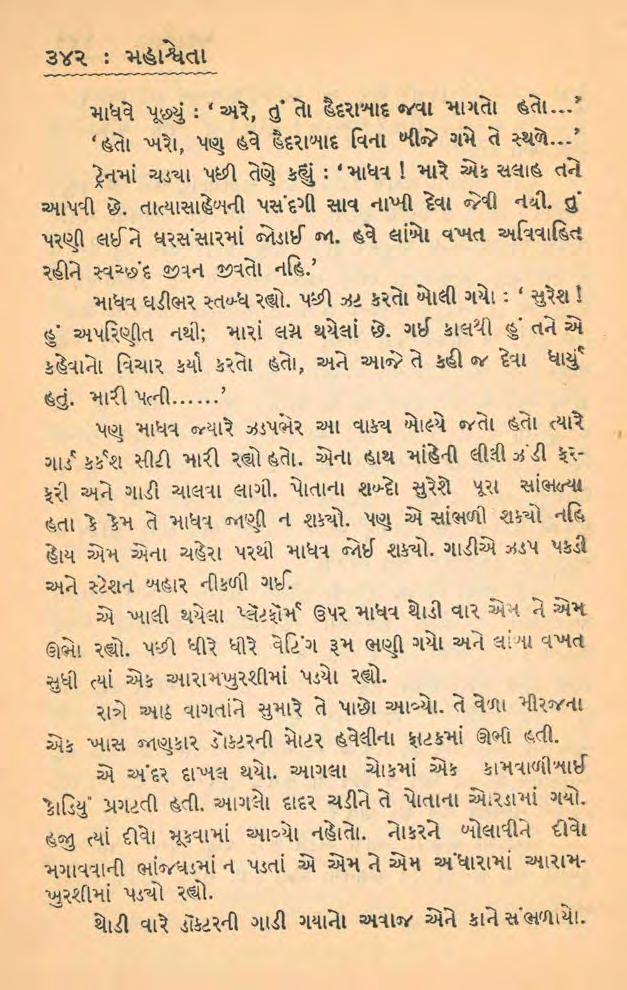 ૩૪૨ : મહાશ્વેતા
માધવે પૂછ્યું : ‘ અરે, તું તો હૈદરાબાદ જવા માગતો હતો...’
‘હતો ખરો, પણ હવે હૈદરાબાદ વિના બીજે ગમે તે સ્થળે...’
ટ્રેનમાં ચડયા પછી તેણે કહ્યું : ‘માધવ ! મારે એક સલાહ તને
આપવી છે. તાત્યાસાહેબની પસંદગી સાવ નાખી દેવા જેવી નથી. તું
પરણી લઈને ઘરસંસારમાં જોડાઈ જા. હવે લાંબો વખત અવિવાહિત
રહીને સ્વચ્છંદ જીવન જીવતો નહિ.’
માધવ ઘડીભર સ્તબ્ધ રહ્યો. પછી ઝટ કરતો બોલી ગયો : ‘ સુરેશ !
હું અપરિણીત નથી; મારાં લગ્ન થયેલાં છે. ગઈ કાલથી હું તને એ
કહેવાનો વિચાર કર્યા કરતો હતો, અને આજે તે કહી જ દેવા ધાર્યું
હતું. મારી પત્ની......’
પણ માધવ જ્યારે ઝડપભેર આ વાક્ય બોલ્યે જતો હતો ત્યારે
ગાર્ડ કર્કશ સીટી મારી રહ્યો હતો. એના હાથ માંહેની લીલી ઝંડી ફર-
ફરી અને ગાડી ચાલવા લાગી. પોતાના શબ્દો સુરેશે પૂરા સાંભળ્યા
હતા કે કેમ તે માધવ જાણી ન શક્યો. પણ એ સાંભળી શક્યો નહિ
હોય એમ એના ચહેરા પરથી માધવ જોઈ શક્યો. ગાડીએ ઝડપ પકડી
અને સ્ટેશન બહાર નીકળી ગઈ.
એ ખાલી થયેલા પ્લૅટફૉર્મ ઉપર માધવ થોડી વાર એમ ને એમ
ઊભો રહ્યો. પછી ધીરે ધીરે વેટિંગ રૂમ ભણી ગયો અને લાંબા વખત
સુધી ત્યાં એક આરામખુરશીમાં પડયો રહ્યો.
રાત્રે આઠ વાગતાંને સુમારે તે પાછો આવ્યો. તે વેળા મીરજના
એક ખાસ જાણકાર ડૉક્ટરની મોટર હવેલીના ફાટકમાં ઊભી હતી.
એ અંદર દાખલ થયો. આગલા ચોકમાં એક કામવાળીબાઈ
કોડિયું પ્રગટતી હતી. આગલો દાદર ચડીને તે પોતાના ઓરડામાં ગયો.
હજી ત્યાં દીવો મૂકવામાં આવ્યો નહોતો. નોકરને બોલાવીને દીવો
મગાવવાની ભાંજઘડમાં ન પડતાં એ એમ ને એમ અંધારામાં આરામ-
ખુરશીમાં પડયો રહ્યો.
થોડી વારે ડૉક્ટરની ગાડી ગયાનો અવાજ એને કાને સંભળાયો.